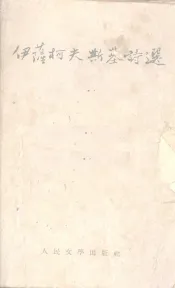 伊薩柯夫斯基詩選
人民文學出版社